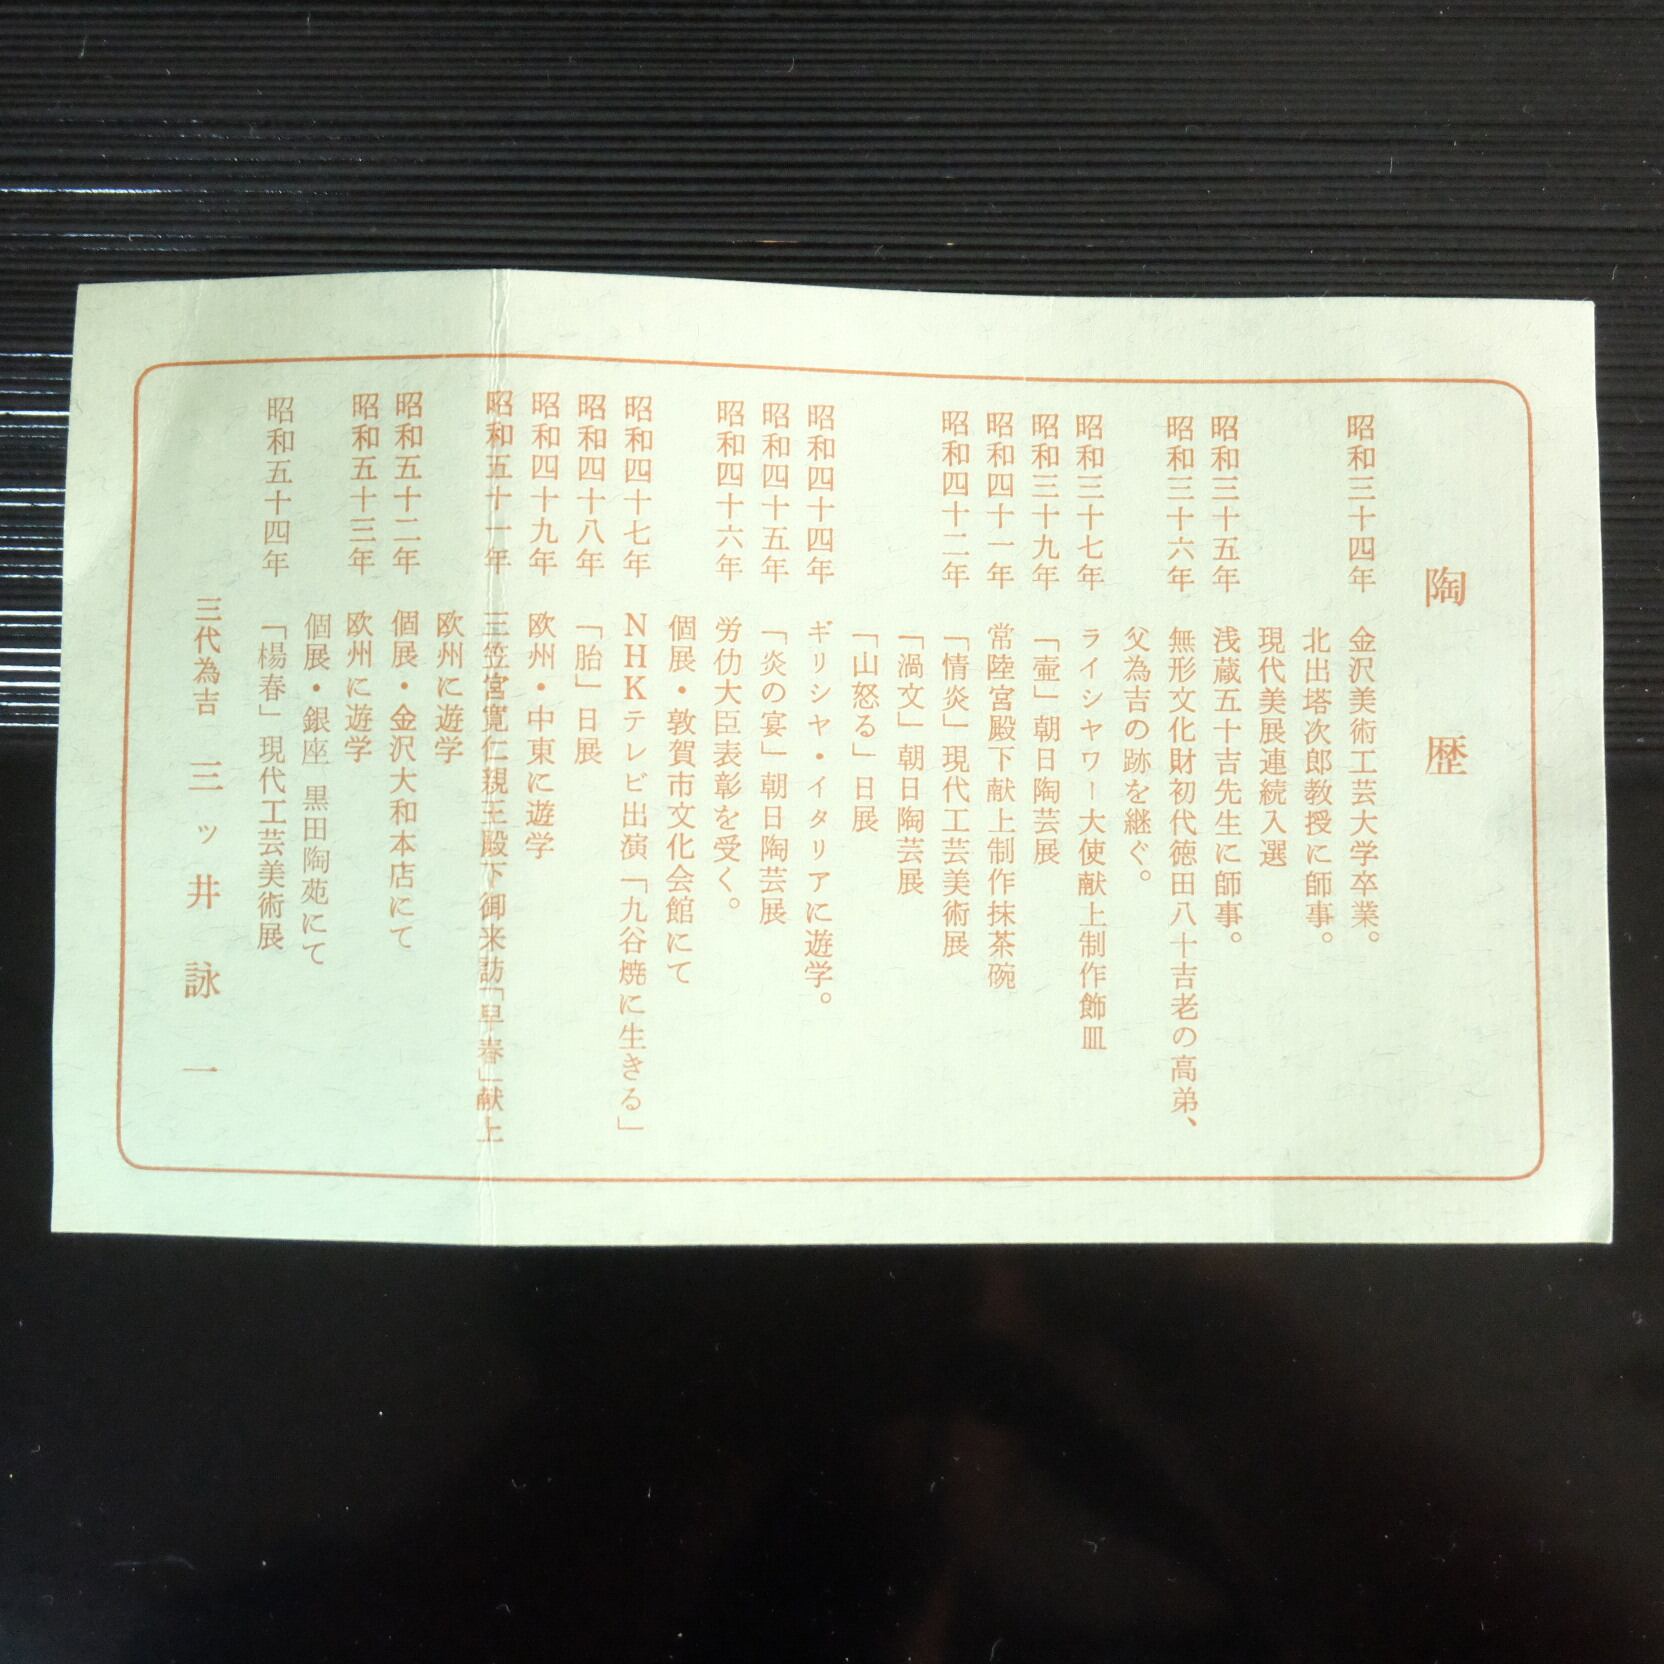 陶歴
昭和三十四年 金沢美術工芸大学卒業。
北出塔次郎教授に師事。
現代美展連続入選
昭和三十五年 浅蔵五十吉先生に師事。
昭和三十六年 無形文化財初代徳田八十吉老の高弟、
父為吉の跡を継ぐ。
昭和三十七年 ライシヤワー大使献上制作飾皿
昭和三十九年 「壷」朝日陶芸展
昭和四十一年 常陸宮殿下献上制作抹茶碗
昭和四十二年 「情炎」現代工芸美術展
「渦文」朝日陶芸展
「山怒る」日展
昭和四十四年 ギリシヤ・イタリアに遊学。
昭和四十五年 「炎の宴」朝日陶芸展
昭和四十六年 労仂大臣表彰を受く。
個展・敦賀市文化会館にて
昭和四十七年 NHKテレビ出演「九谷焼に生きる」
昭和四十八年 「胎」日展
昭和四十九年 欧州・中東に遊学
昭和五十一年 三笠宮寛仁親王殿下御来訪「早春」献上
欧州に遊学
昭和五十二年 個展・金沢大和本店にて
昭和五十三年 欧州に遊学
個展・銀座 黒田陶苑にて
昭和五十四年 「楊春」現代工芸美術展
三代為吉 三ッ井詠一